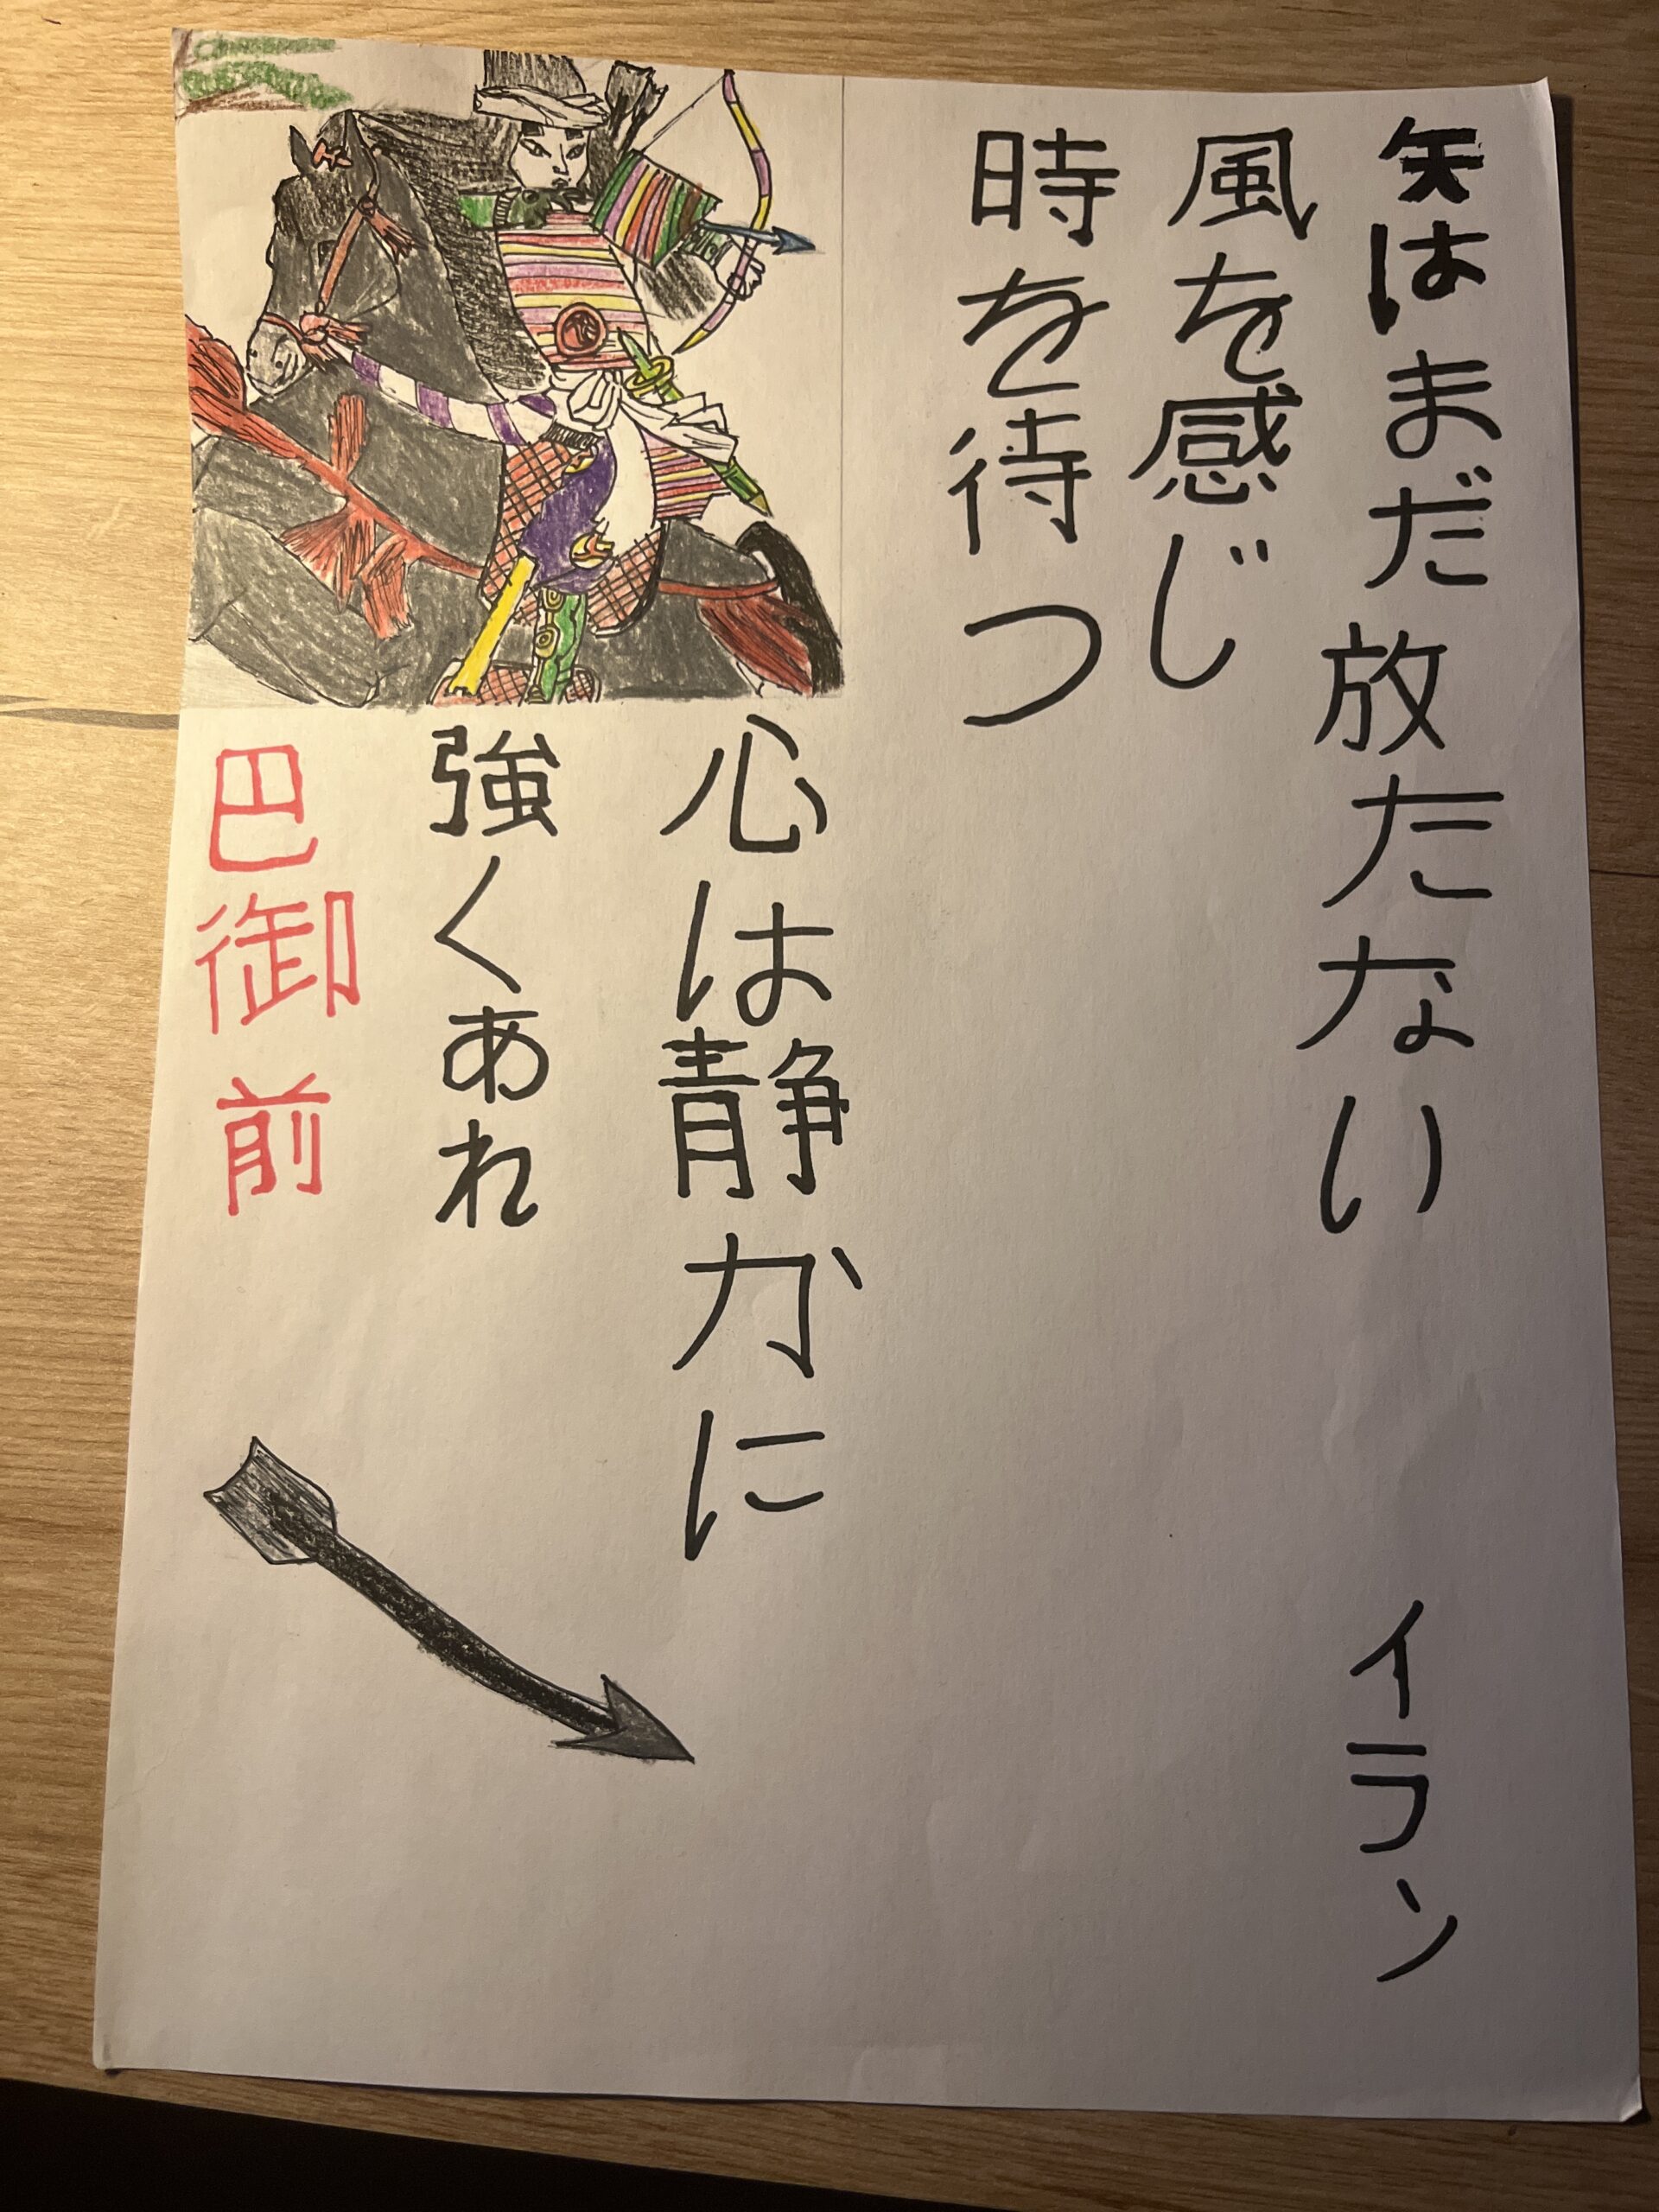 矢はまだ放たない
イラン
風を感じ
時を待つ
心は静かに
強くあれ
巴御前